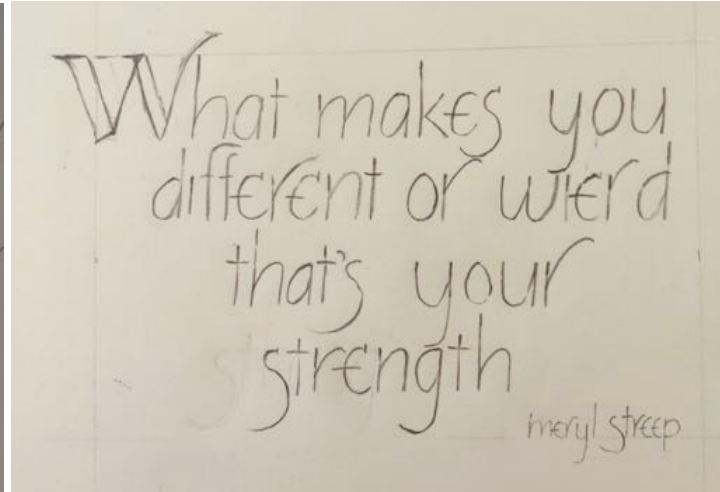 What makes you
different or wierd
that's your
strength
meryl streep